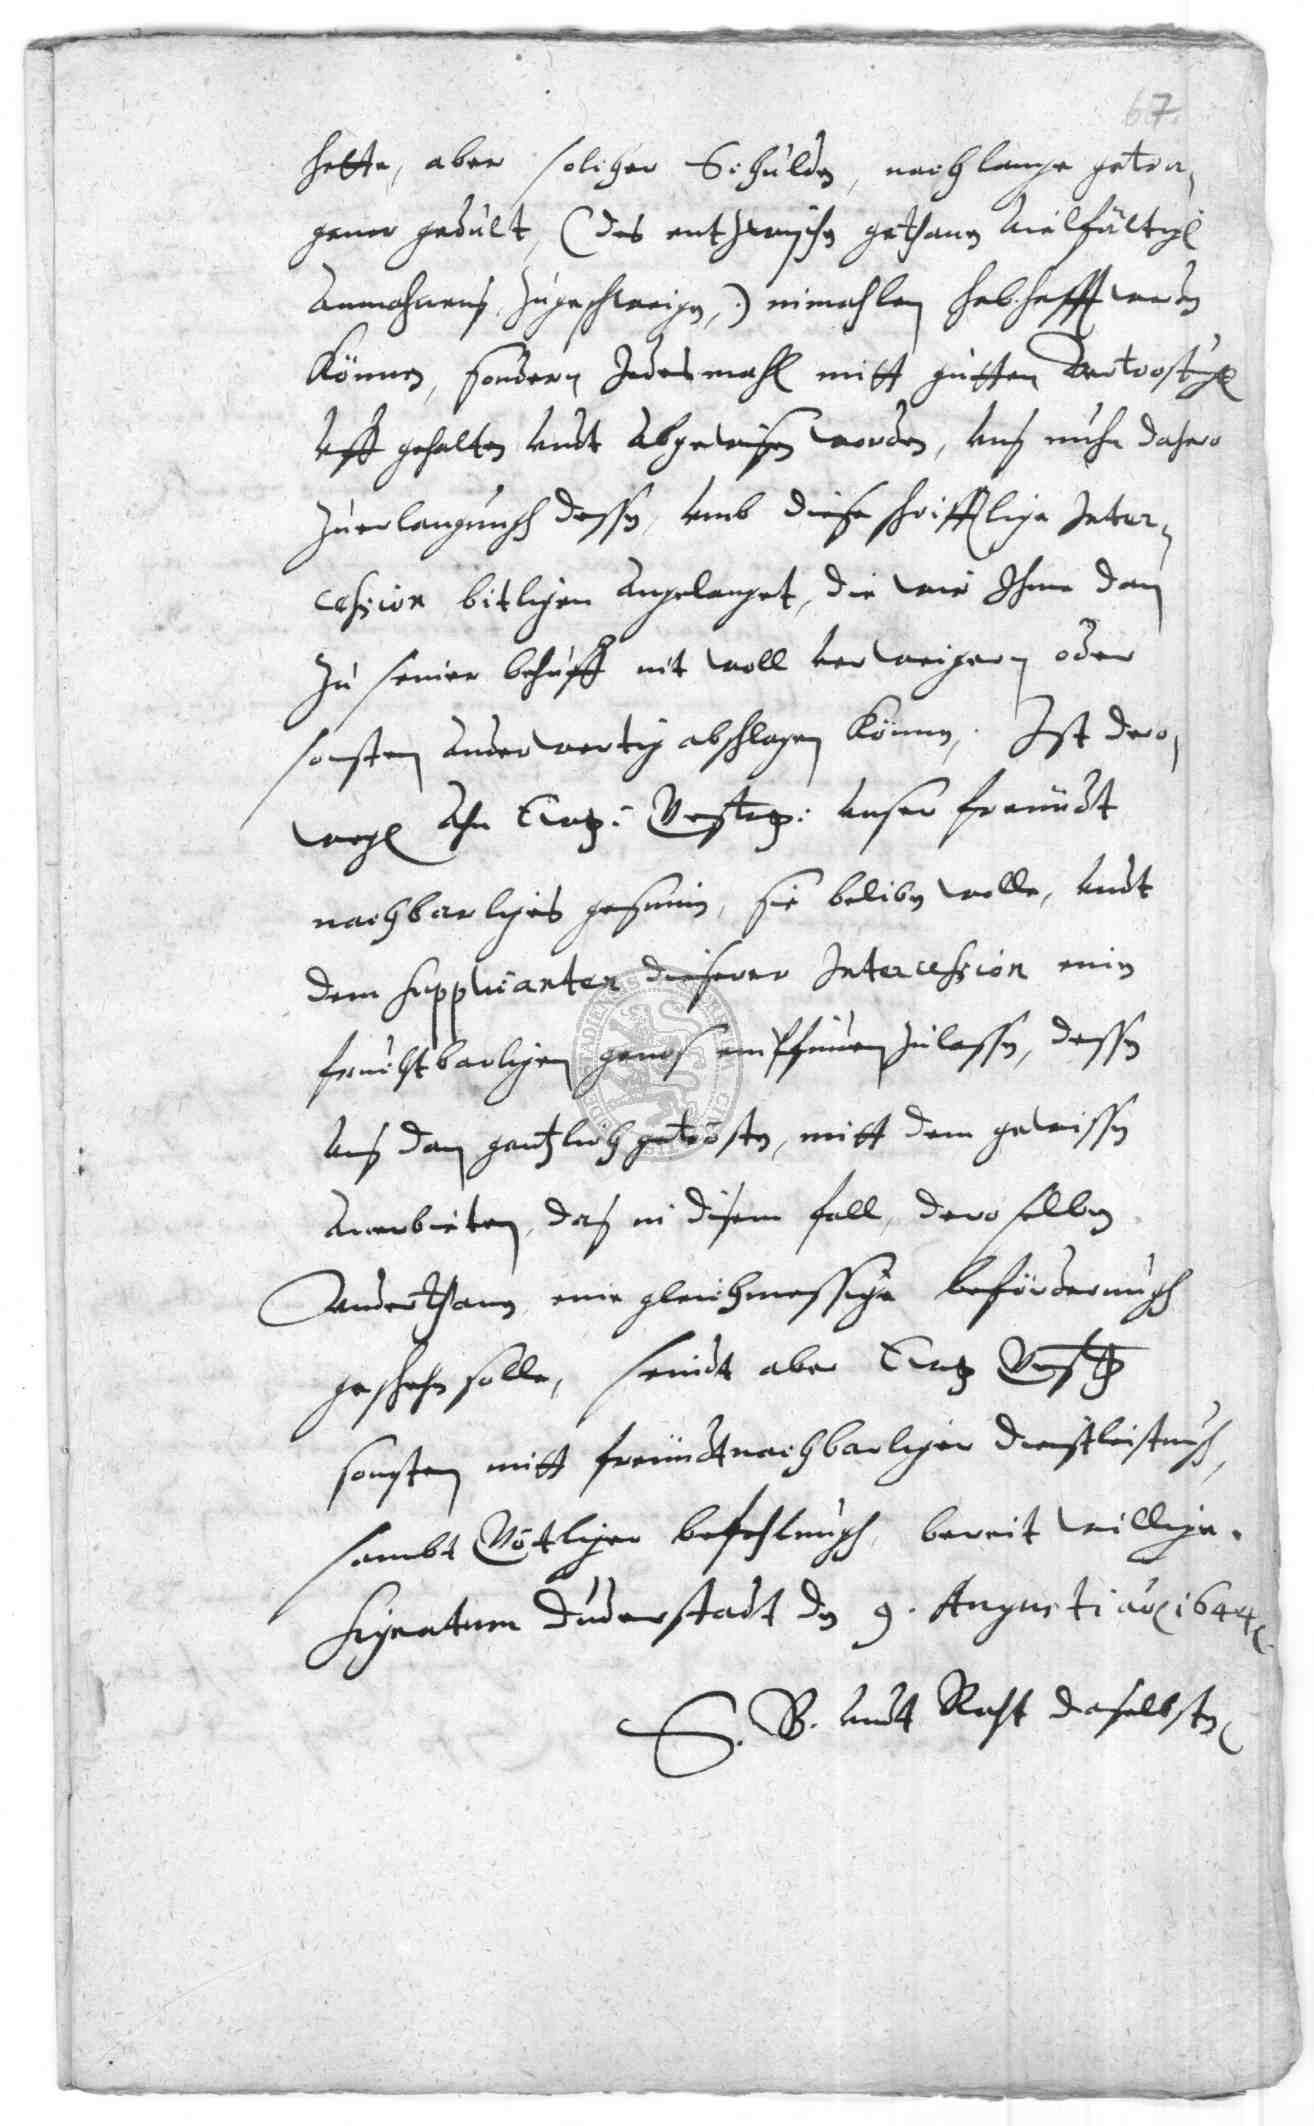 67.
hette, aber solcher Schulden, nach lange getra,
gener gedult, (des entzwischen gethann vielfältigl
anmahnens zugeschweigen,) niemahlen habhafft werden
können, sondern Jedesmahl mitt gutten vertrostungl
uff gehalten undt abgewisen worden, uns nuhn dahero
zuerlangungh dessen, umb diese schrifftlige Inter,
cession bitligen angelanget, die wir Ihme dan
zu seiner behuff nit woll verweigern oder
sonsten anderwertig abschlagen können, Ist dero,
wegl ahn Ew: Vestg: unser freündt
nachbarliges gesinnen, sie belieben wolle, undt
dem supplicanten dieserer Intercession einen
fruchtbarligen genos empfinden zulassen, dessen
uns dan gentzlich getrösten, mitt dem gewissen
anerbieten, das in disem fall, deroselben
underthann eine gleichmessige beförderungh
geschehen solle, seindt aber Vestg
sonsten mitt freündtnachbarliger dienstleistungh,
sambt Götliger befehlungh, bereit willige.
Signatum Duderstadt den 9. Augusti ao 1644
S. B. undt Raht daselbsten